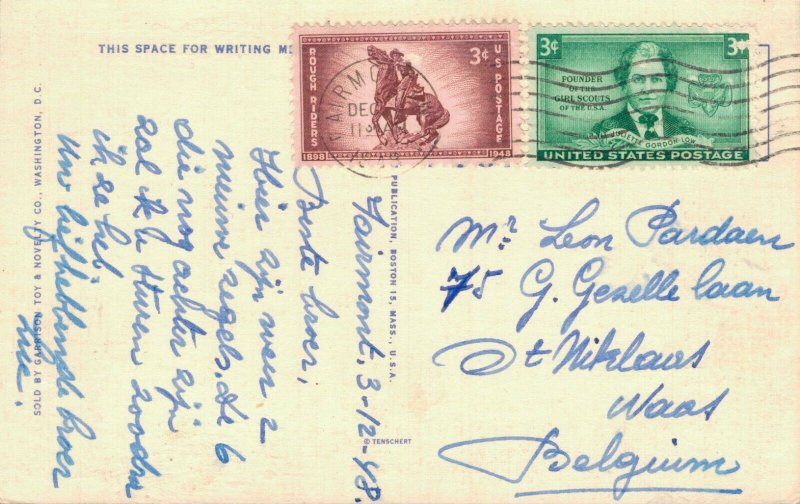 THIS SPACE FOR WRITING
3¢
U S POSTAGE
ROUGH RIDERS
1898
1948
FAIRMO
DEC
11 AM
3¢
3¢
FOUNDER
OF THE
GIRL SCOUTS
OF THE U.S.A.
JULIETTE GORDON LOW
UNITED STATES POSTAGE
SOLD BY GARRISON TOY & NOVELTY CO., WASHINGTON, D.C.
PUBLICATION, BOSTON 15, MASS., U.S.A.
© TENSCHERT
Fairmont, 3-12-48.
Beste broer,
Hier zijn weer 2
nieuwe zegels, de 6
die nog achter zijn
zal ik u sturen zoodra
ik ze heb
Uw liefhebbende broer
Mr. Leon Pardaen
75 G. Gezelle laan
St Niklaus
Waas
Belgium